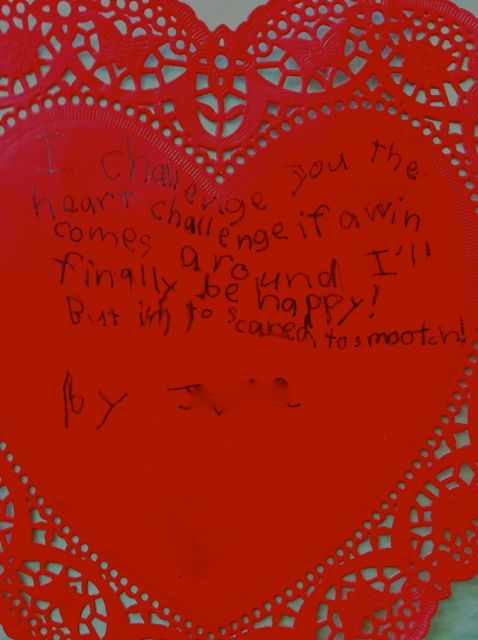 I challenge you the
heart challenge if a win
comes around I'll
finally be happy!
But im to scared to smooch!
By